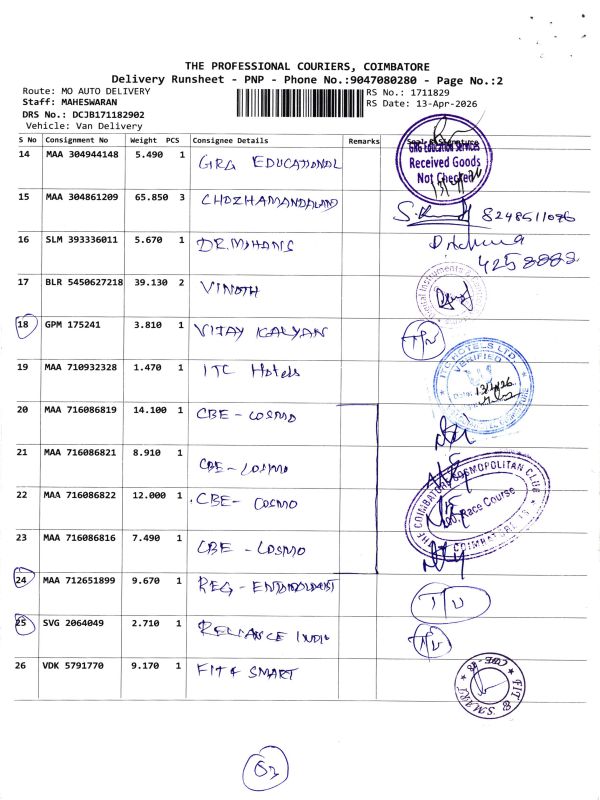 THE PROFESSIONAL COURIERS, COIMBATORE
Delivery Runsheet - PNP - Phone No.:9047080280 - Page No.:2
Route: MO AUTO DELIVERY
RS No.: 1711829
Staff: MAHESWARAN
RS Date: 13-Apr-2026
DRS No.: DCJB171182902
Vehicle: Van Delivery
S No Consignment No Weight PCS Consignee Details Remarks Seal & Signature
14 MAA 304944148 5.490 1 GRG EDUCATIONAL
GRG Education Services
Received Goods
Not Checked
15 MAA 304861209 65.850 3 CHOZHAMANDALAM 8248511086
16 SLM 393336011 5.670 1 DR.MOHANS
4258888
17 BLR 5450627218 39.130 2 VINOTH
18 GPM 175241 3.810 1 VIJAY KALYAN T/U
19 MAA 710932328 1.470 1 ITC Hotels
ITC HOTELS LTD.
VERIFIED
20 MAA 716086819 14.100 1 CBE - COSMO
21 MAA 716086821 8.910 1 CBE - COSMO
22 MAA 716086822 12.000 1 CBE - COSMO
THE COIMBATORE COSMOPOLITAN CLUB
100, Race Course
COIMBATORE-18
23 MAA 716086816 7.490 1 CBE - COSMO
24 MAA 712651899 9.670 1 REG - T/U
25 SVG 2064049 2.710 1 RELIANCE INDI T/U
26 VDK 5791770 9.170 1 FIT & SMART
FIT & SMART
CBE-18
03